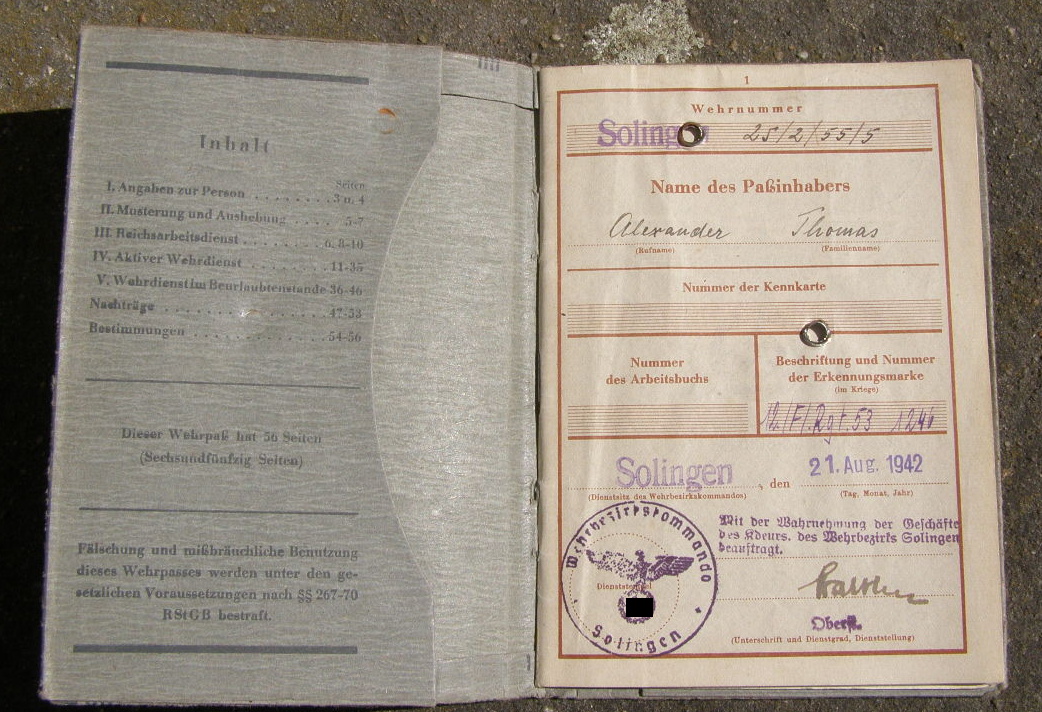 Inhalt
Seiten
I. Angaben zur Person . . . . . . . . 3 u. 4
II. Musterung und Aushebung . . . . . . 5-7
III. Reichsarbeitsdienst . . . . . . . . 6, 8-10
IV. Aktiver Wehrdienst . . . . . . . . 11-35
V. Wehrdienst im Beurlaubtenstande 36-46
Nachträge . . . . . . . . . . . . 47-53
Bestimmungen . . . . . . . . . . 54-56
Dieser Wehrpaß hat 56 Seiten
(Sechsundfünfzig Seiten)
Fälschung und mißbräuchliche Benutzung
dieses Wehrpasses werden unter den ge-
setzlichen Voraussetzungen nach §§ 267-70
RStGB bestraft.
1
Wehrnummer
Solingen 25/2/55/5
Name des Paßinhabers
Alexander Thomas
(Rufname) (Familienname)
Nummer der Kennkarte
Nummer
des Arbeitsbuchs
Beschriftung und Nummer
der Erkennungsmarke
(im Kriege)
12./Fl. Rgt. 53 1246
Solingen, den 21. Aug. 1942
(Dienstsitz des Wehrbezirkskommandos) (Tag, Monat, Jahr)
Mit der Wahrnehmung der Geschäfte
des Kdeurs. des Wehrbezirks Solingen
beauftragt.
Wehrbezirkskommando
Solingen
Oberst.
(Unterschrift und Dienstgrad, Dienststellung)